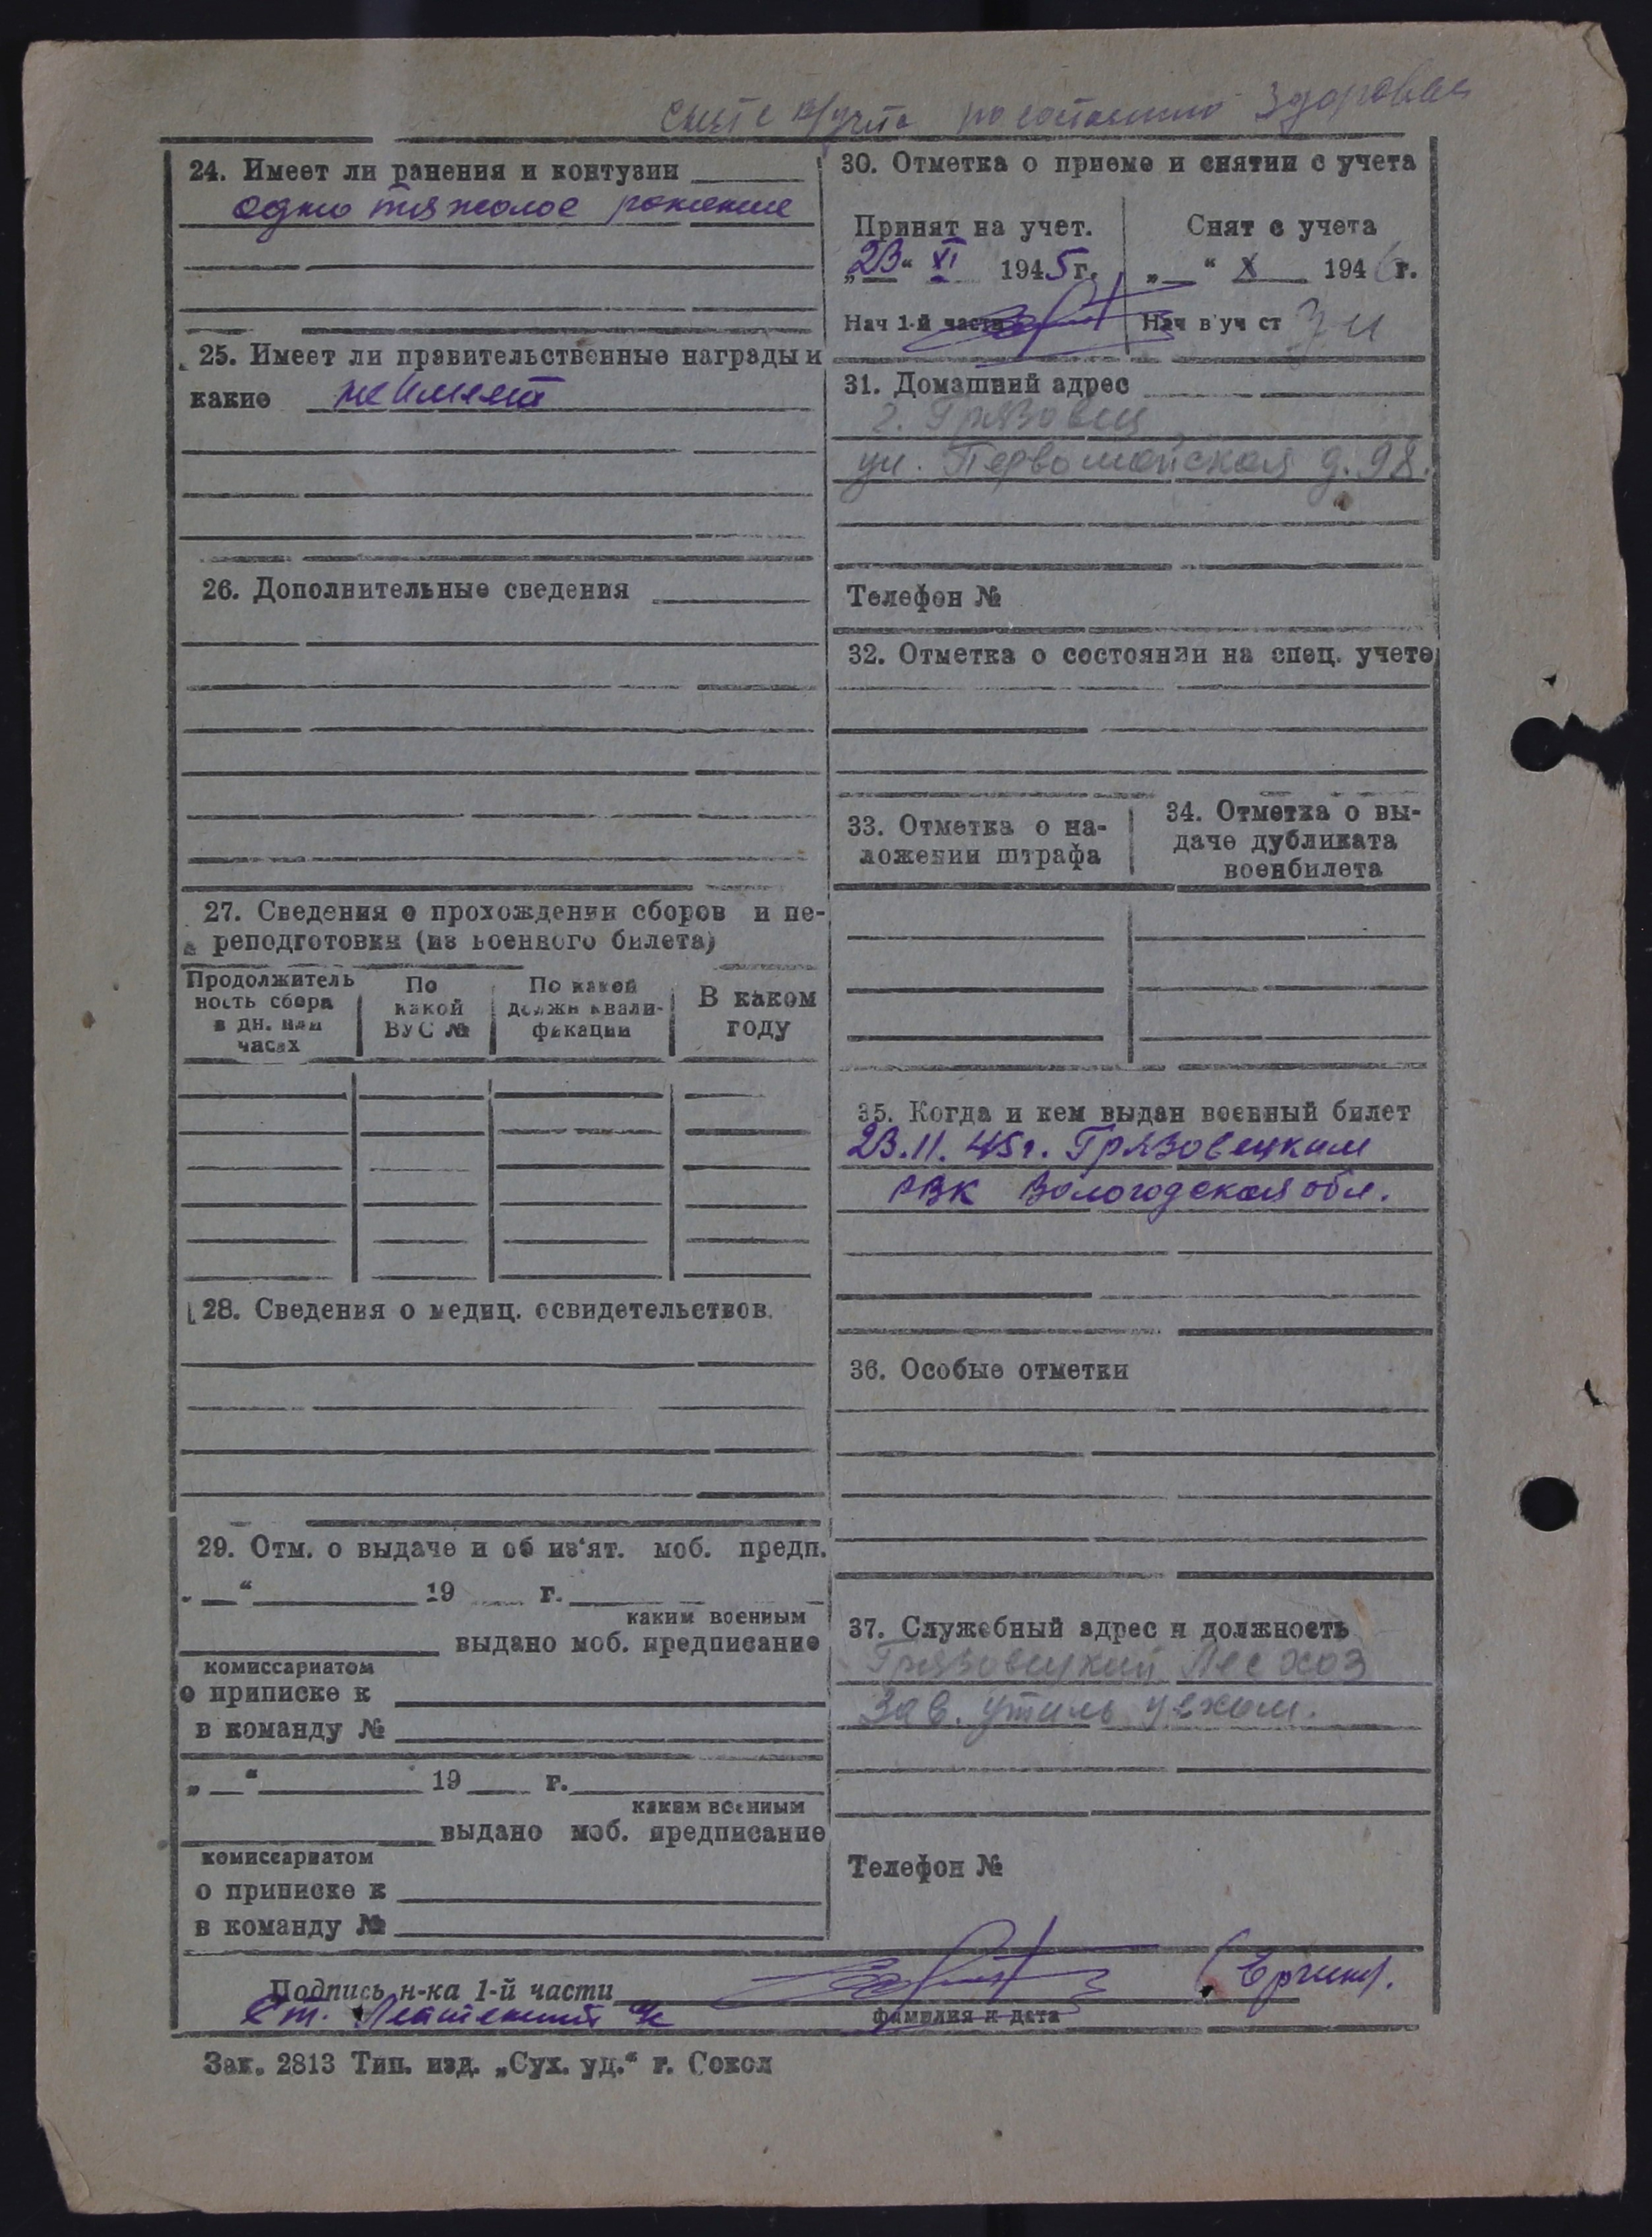 снят с в/учета по состоянию здоровья
24. Имеет ли ранения и контузии
одно тяжолое ранение
25. Имеет ли правительственные награды и
какие не имеет
26. Дополнительные сведения
27. Сведения о прохождении сборов и пе-
реподготовки (из военного билета)
Продолжитель
ность сбора
в дн. или
часах
По
какой
ВУС №
По какой
должн квали-
фикации
В каком
году
28. Сведения о медиц. освидетельствов.
29. Отм. о выдаче и об из'ят. моб. предп.
„ “ 19 г.
каким военным
выдано моб. предписание
комиссариатом
о приписке к
в команду №
„ “ 19 г.
каким военным
выдано моб. предписание
комиссариатом
о приписке к
в команду №
30. Отметка о приеме и снятии с учета
Принят на учет.
„23“ XI 1945 г.
Нач 1-й части
Снят с учета
„ “ X 1946 г.
Нач в уч ст
31. Домашний адрес
г. Грязовец
ул. Первомайская д. 98.
Телефон №
32. Отметка о состоянии на спец. учете
33. Отметка о на-
ложении штрафа
34. Отметка о вы-
даче дубликата
военбилета
35. Когда и кем выдан военный билет
23.11.45г. Грязовецким
РВК Вологодская обл.
36. Особые отметки
37. Служебный адрес и должность
Грязовецкий Лесхоз
Зав. утиль цехом.
Телефон №
Подпись н-ка 1-й части
Ст. Лейтенант
фамилия и дата
Зак. 2813 Тип. изд. „Сух. уд.“ г. Сокол